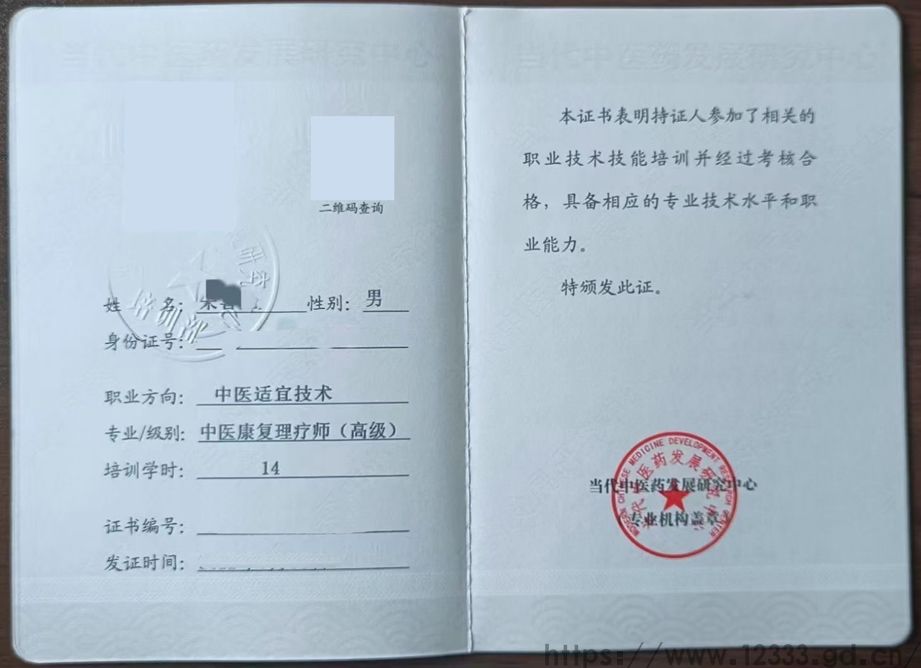 当代中医药发展研究中心
二维码查询
培训部
姓 名：
性别：男
身份证号：
职业方向：中医适宜技术
专业/级别：中医康复理疗师（高级）
培训学时：14
证书编号：
发证时间：
当代中医药发展研究中心
本证书表明持证人参加了相关的
职业技术技能培训并经过考核合
格，具备相应的专业技术水平和职
业能力。
特颁发此证。
当代中医药发展研究中心
专业机构盖章
MODERN CHINESE MEDICINE DEVELOPMENT RESEARCH CENTER
当代中医药发展研究中心
https://www.12333.gd.cn/